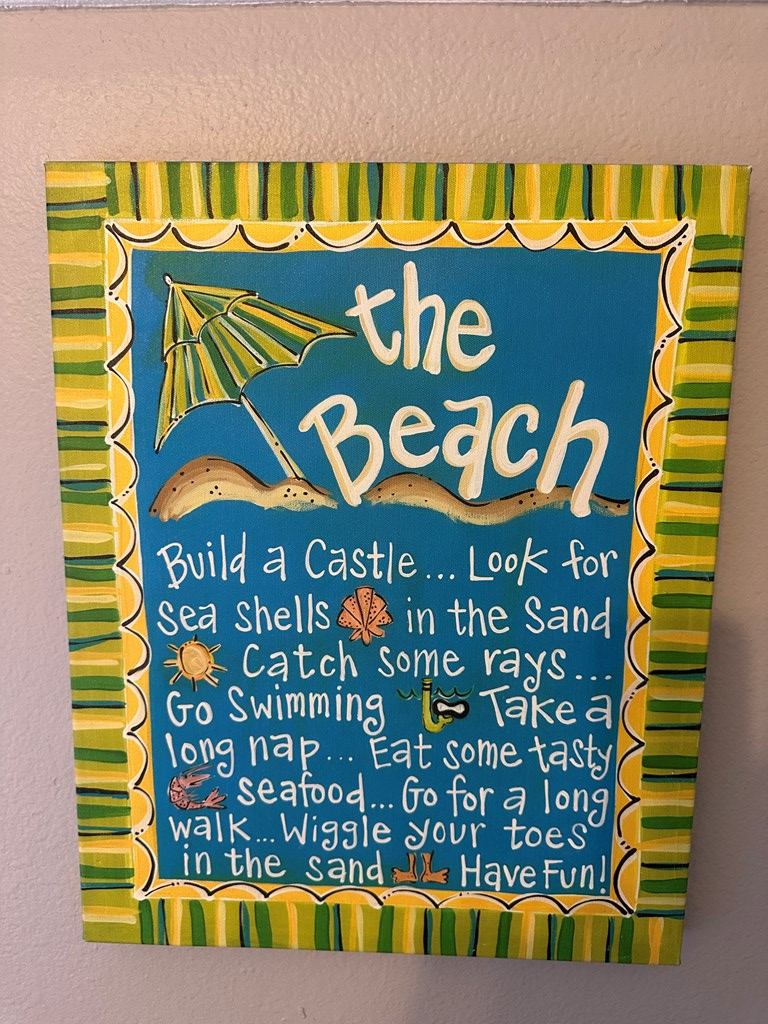 the
Beach
Build a Castle... Look for
sea shells in the Sand
Catch some rays...
Go Swimming Take a
long nap... Eat some tasty
seafood... Go for a long
walk... Wiggle your toes
in the sand Have Fun!